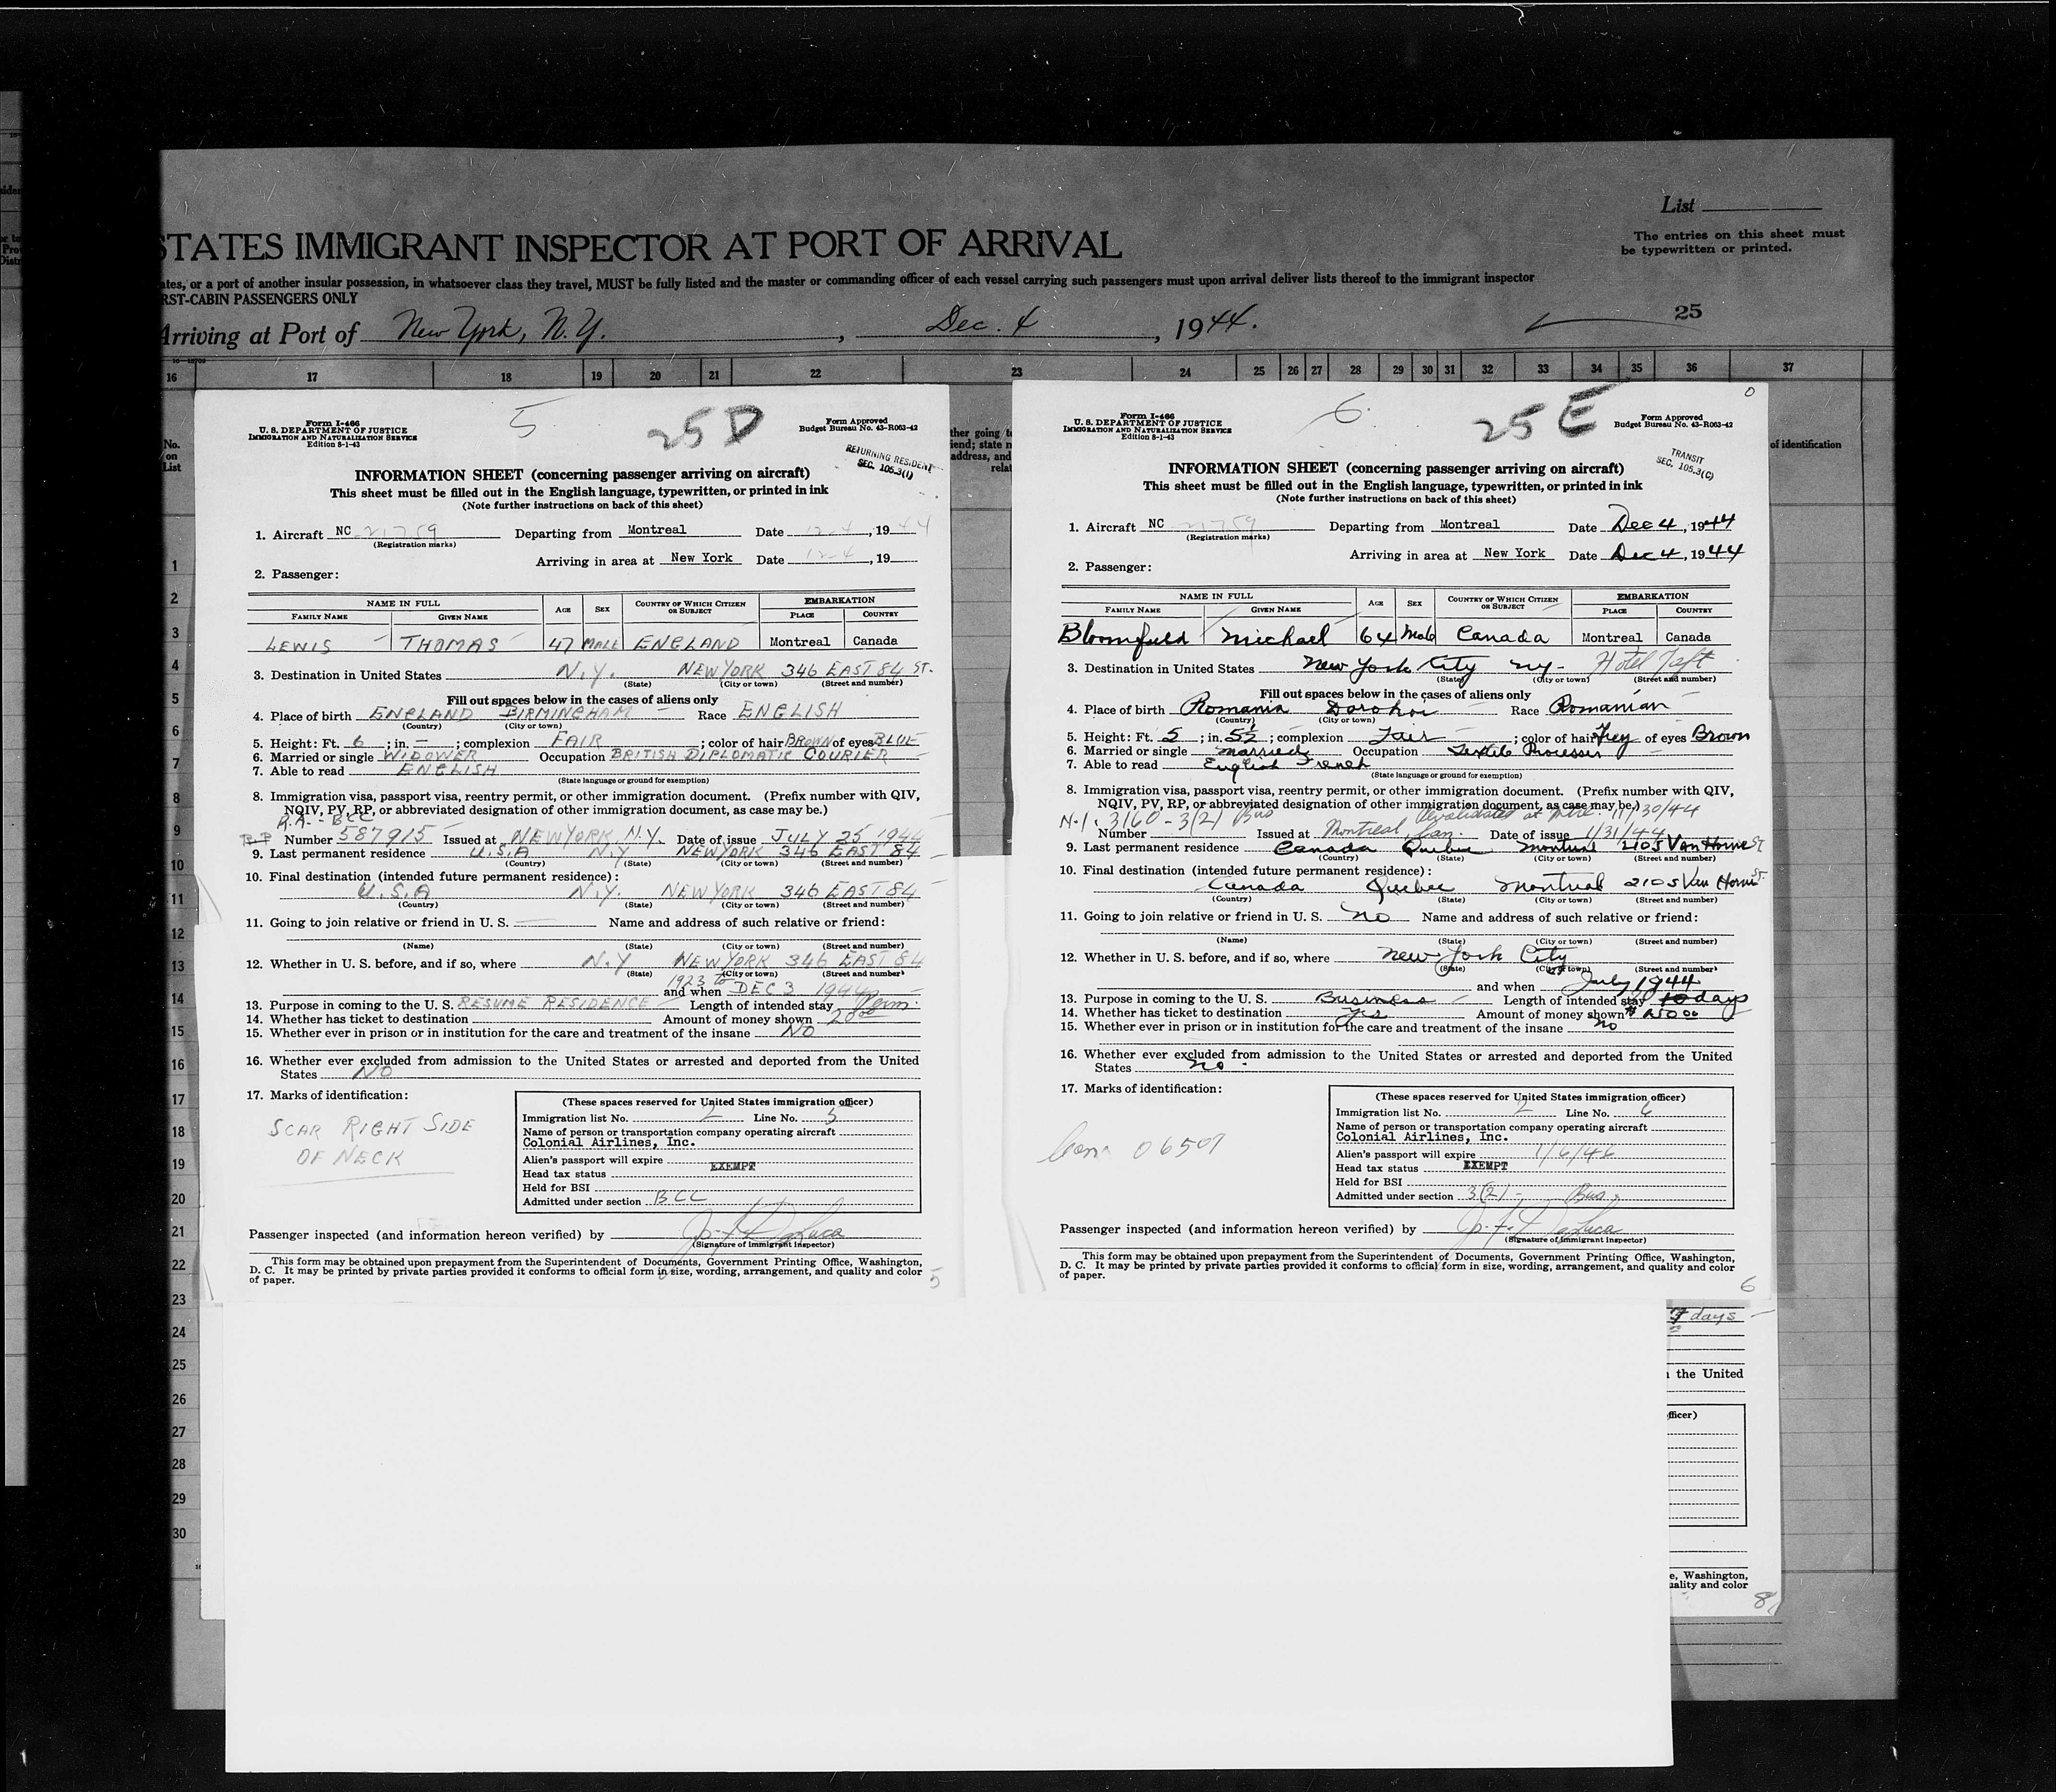 List
The entries on this sheet must
be typewritten or printed.
STATES IMMIGRANT INSPECTOR AT PORT OF ARRIVAL
ates, or a port of another insular possession, in whatsoever class they travel, MUST be fully listed and the master or commanding officer of each vessel carrying such passengers must upon arrival deliver lists thereof to the immigrant inspector
RST-CABIN PASSENGERS ONLY
25
Arriving at Port of New York, N.Y., Dec. 4, 1944.
16 17 18 19 20 21 22 23 24 25 26 27 28 29 30 31 32 33 34 35 36 37
No.
on
List
1
2
3
4
5
6
7
8
9
10
11
12
13
14
15
16
17
18
19
20
21
22
23
24
25
26
27
28
29
30
5 25D
Form I-466
U. S. DEPARTMENT OF JUSTICE
IMMIGRATION AND NATURALIZATION SERVICE
Edition 8-1-43
Form Approved
Budget Bureau No. 43-R063-42
RETURNING RESIDENT
SEC. 105.3(1)
INFORMATION SHEET (concerning passenger arriving on aircraft)
This sheet must be filled out in the English language, typewritten, or printed in ink
(Note further instructions on back of this sheet)
1. Aircraft NC 21759 Departing from Montreal Date 12-4, 1944
(Registration marks)
Arriving in area at New York Date 12-4, 19
2. Passenger:
NAME IN FULL AGE SEX COUNTRY OF WHICH CITIZEN OR SUBJECT EMBARKATION
FAMILY NAME GIVEN NAME PLACE COUNTRY
LEWIS THOMAS 47 MALE ENGLAND Montreal Canada
3. Destination in United States N.Y. NEW YORK 346 EAST 84 ST.
(State) (City or town) (Street and number)
Fill out spaces below in the cases of aliens only
4. Place of birth ENGLAND BIRMINGHAM Race ENGLISH
(Country) (City or town)
5. Height: Ft. 6; in. –; complexion FAIR; color of hair BROWN of eyes BLUE
6. Married or single WIDOWER Occupation BRITISH DIPLOMATIC COURIER
7. Able to read ENGLISH
(State language or ground for exemption)
8. Immigration visa, passport visa, reentry permit, or other immigration document. (Prefix number with QIV,
NQIV, PV, RP, or abbreviated designation of other immigration document, as case may be.)
R.A. - BCC
Number 587915 Issued at NEW YORK N.Y. Date of issue JULY 25 1944
9. Last permanent residence U.S.A N.Y NEW YORK 346 EAST 84
(Country) (State) (City or town) (Street and number)
10. Final destination (intended future permanent residence):
U.S.A N.Y. NEW YORK 346 EAST 84
(Country) (State) (City or town) (Street and number)
11. Going to join relative or friend in U. S. Name and address of such relative or friend:
(Name) (State) (City or town) (Street and number)
12. Whether in U. S. before, and if so, where N.Y NEW YORK 346 EAST 84
(State) (City or town) (Street and number)
1923 to
and when DEC 3 1944
13. Purpose in coming to the U. S. RESUME RESIDENCE Length of intended stay Perm.
14. Whether has ticket to destination Amount of money shown 20.00
15. Whether ever in prison or in institution for the care and treatment of the insane NO
16. Whether ever excluded from admission to the United States or arrested and deported from the United
States NO
17. Marks of identification:
SCAR RIGHT SIDE
OF NECK
(These spaces reserved for United States immigration officer)
Immigration list No. 2 Line No. 5
Name of person or transportation company operating aircraft
Colonial Airlines, Inc.
Alien's passport will expire
Head tax status EXEMPT
Held for BSI
Admitted under section BCC
Passenger inspected (and information hereon verified) by
(Signature of Immigrant Inspector)
This form may be obtained upon prepayment from the Superintendent of Documents, Government Printing Office, Washington,
D. C. It may be printed by private parties provided it conforms to official form in size, wording, arrangement, and quality and color
of paper.
5
ther going to
iend; state n
address, and
relat
6 25E
Form I-466
U. S. DEPARTMENT OF JUSTICE
IMMIGRATION AND NATURALIZATION SERVICE
Edition 8-1-43
Form Approved
Budget Bureau No. 43-R063-42
TRANSIT
SEC. 105.3(C)
of identification
INFORMATION SHEET (concerning passenger arriving on aircraft)
This sheet must be filled out in the English language, typewritten, or printed in ink
(Note further instructions on back of this sheet)
1. Aircraft NC 21759 Departing from Montreal Date Dec 4, 1944
(Registration marks)
Arriving in area at New York Date Dec 4, 1944
2. Passenger:
NAME IN FULL AGE SEX COUNTRY OF WHICH CITIZEN OR SUBJECT EMBARKATION
FAMILY NAME GIVEN NAME PLACE COUNTRY
Bloomfield Michael 64 Male Canada Montreal Canada
3. Destination in United States New York City NY- Hotel Taft
(State) (City or town) (Street and number)
Fill out spaces below in the cases of aliens only
4. Place of birth Romania Dorohoi Race Romanian
(Country) (City or town)
5. Height: Ft. 5; in. 5½; complexion Fair; color of hair Grey of eyes Brown
6. Married or single Married Occupation Textile Processer
7. Able to read English French
(State language or ground for exemption)
8. Immigration visa, passport visa, reentry permit, or other immigration document. (Prefix number with QIV,
NQIV, PV, RP, or abbreviated designation of other immigration document, as case may be.)
N.I. 3160-3(2) Bus Revalidated at Mtre. 11/30/44
Number Issued at Montreal, Can. Date of issue 1/31/44
9. Last permanent residence Canada Quebec Montreal 2105 Van Horne St
(Country) (State) (City or town) (Street and number)
10. Final destination (intended future permanent residence):
Canada Quebec Montreal 2105 Van Horne St.
(Country) (State) (City or town) (Street and number)
11. Going to join relative or friend in U. S. No Name and address of such relative or friend:
(Name) (State) (City or town) (Street and number)
12. Whether in U. S. before, and if so, where New York City
(State) (City or town) (Street and number)
and when July 1944
13. Purpose in coming to the U. S. Business Length of intended stay 10 days
14. Whether has ticket to destination Yes Amount of money shown
15. Whether ever in prison or in institution for the care and treatment of the insane no
16. Whether ever excluded from admission to the United States or arrested and deported from the United
States no.
17. Marks of identification:
Can 06507
(These spaces reserved for United States immigration officer)
Immigration list No. 2 Line No. 6
Name of person or transportation company operating aircraft
Colonial Airlines, Inc.
Alien's passport will expire 1/6/46
Head tax status EXEMPT
Held for BSI
Admitted under section 3(2)-, Bus,
Passenger inspected (and information hereon verified) by
(Signature of Immigrant Inspector)
This form may be obtained upon prepayment from the Superintendent of Documents, Government Printing Office, Washington,
D. C. It may be printed by private parties provided it conforms to official form in size, wording, arrangement, and quality and color
of paper.
6
days
the United
fficer)
e, Washington,
uality and color
8